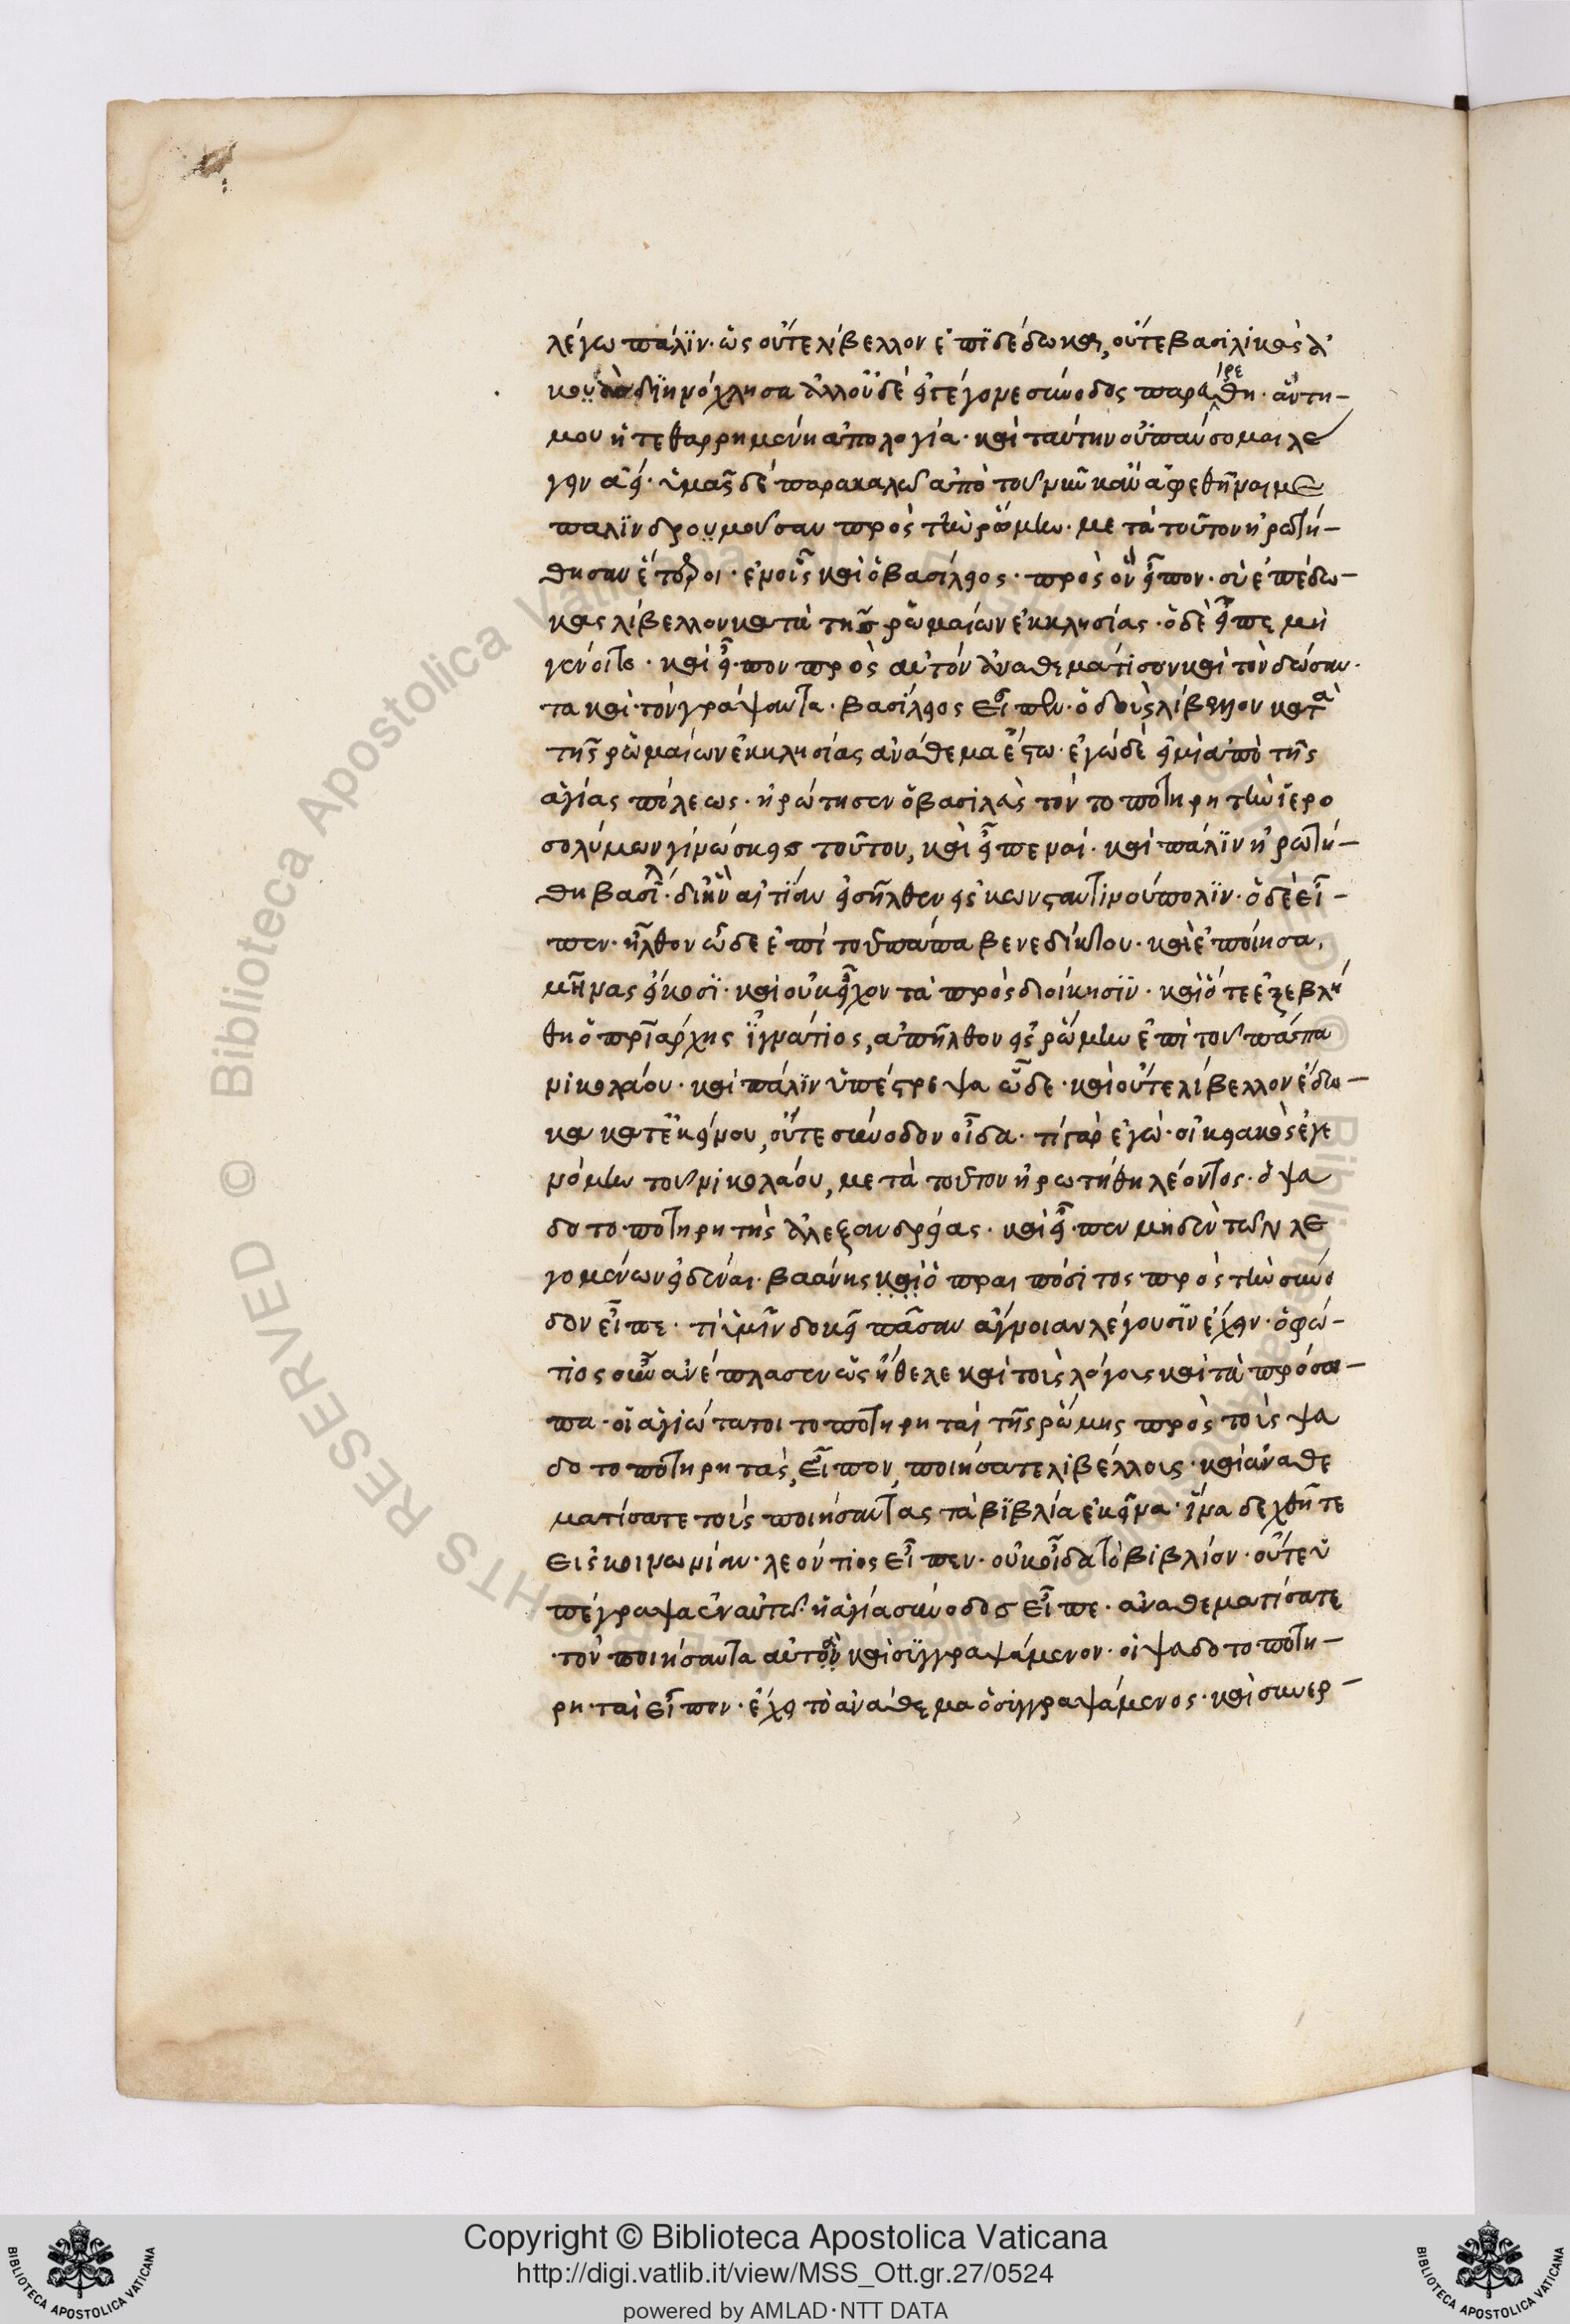 λέγω πάλϊν· ὡς οὔτε λίβελλον ἐπϊδέδωκα, οὔτε βασιλικὰς ἀ
κοὰς διηνόχλησα ἀλλ' οὐδὲ εἴτέ γομε σύνοδος παραιρεθῆ· αὕτη
μου ἡ τεθαρρημένη ἀπολογία· καὶ ταύτην οὐ παύσομαι λέ
γειν ἀεί· ὑμᾶς δὲ παρακαλῶ ἀπὸ τοῦ νῦν κἂν ἀφεθῆναι με
παλϊνδρομοῦσαν πρὸς τὴν ῥώμην· μετὰ τοῦτον ἠρωτή
θησαν ἕτεροι· ἐν οἷς καὶ ὁ βασίλειος· πρὸς ὃν εἶπον· σὺ ἐπέδω
κας λίβελλον κατὰ τῆς ῥωμαίων ἐκκλησίας· ὁ δὲ εἶπε μὴ
γένοιτο· καὶ εἶπον πρὸς αὐτόν ἀναθεμάτισον καὶ τὸν δώσαν
τα καὶ τὸν γράψαντα· βασίλειος εἶπεν· ὁ δοὺς λίβελλον κατὰ
τῆς ῥωμαίων ἐκκλησίας ἀνάθεμα ἔστω· ἐγὼ δὲ εἰμὶ ἀπὸ τῆς
ἁγίας πόλεως· ἠρώτησεν ὁ βασιλεὺς τὸν τοποτηρητὴν ἱερο
σολύμων γινώσκεις τοῦτον, καὶ εἶπε ναί· καὶ πάλϊν ἠρωτή
θη βασίλ· δι' ἣν αἰτϊαν εἰσῆλθεν εἰς κωνσταντινούπολϊν· ὁ δὲ εἶ
πεν· ἦλθον ὧδε ἐπὶ τοῦ πάπα βενεδίκτου· καὶ ἐποίησα,
μῆνας εἴκοσϊ· καὶ οὐκ εἶχον τὰ πρὸς διοίκησϊν· καὶ ὅτε ἐξεβλή
θη ὁ πριάρχης ἰγνάτιος, ἀπῆλθον εἰς ῥώμην ἐπὶ τοῦ πάππα
νικολάου· καὶ πάλϊν ὑπέστρεψα ὧδε· καὶ οὔτε λίβελλον ἔδω
κα κατ' ἐκείνου, οὔτε σύνοδον οἶδα· τί γὰρ ἐγὼ· οἰκειακὸς ἐγε
νόμην τοῦ νικολάου, μετὰ τοῦτον ἠρωτήθη λέοντος· ὁ ψευ
δοτοποτηρητὴς ἀλεξανδρείας· καὶ εἶπεν μηδὲν τῶν λε
γομένων εἰδέναι· βαάνης καὶ ὁ πραιπόσιτος πρὸς τὴν σύνο
δον εἶπε· τί ὑμῖν δοκεῖ πᾶσαν ἄγνοιαν λέγουσϊν ἔχειν· ὁ φώ
τιος οὖν ἀνέπλασεν ὡς ἤθελε καὶ τοὺς λόγους καὶ τὰ πρόσω
πα· οἱ ἁγιώτατοι τοποτηρηταὶ τῆς ῥώμης πρὸς τοὺς ψευ
δοτοποτηρητὰς, εἶπον, ποιήσατε λιβέλλους· καὶ ἀναθε
ματίσατε τοὺς ποιήσαντας τὰ βϊβλία ἐκεῖνα· ἵνα δεχθῆτε
εἰς κοινωνίαν· λεόντιος εἶπεν· οὐκ οἶδα τὸ βιβλίον· οὔτε ὑ
πέγραψα ἐν αὐτῶ· ἡ ἁγία σύνοδος εἶπε· ἀναθεματίσατε
τὸν ποιήσαντα αὐτὸ καὶ συγγραψάμενον· οἱ ψευδοτοποτη
ρηταὶ εἶπον· ἔχει τὸ ἀνάθεμα ὁ συγγραψάμενος· καὶ συνερ
Copyright © Biblioteca Apostolica Vaticana
http://digi.vatlib.it/view/MSS_Ott.gr.27/0524
powered by AMLAD·NTT DATA